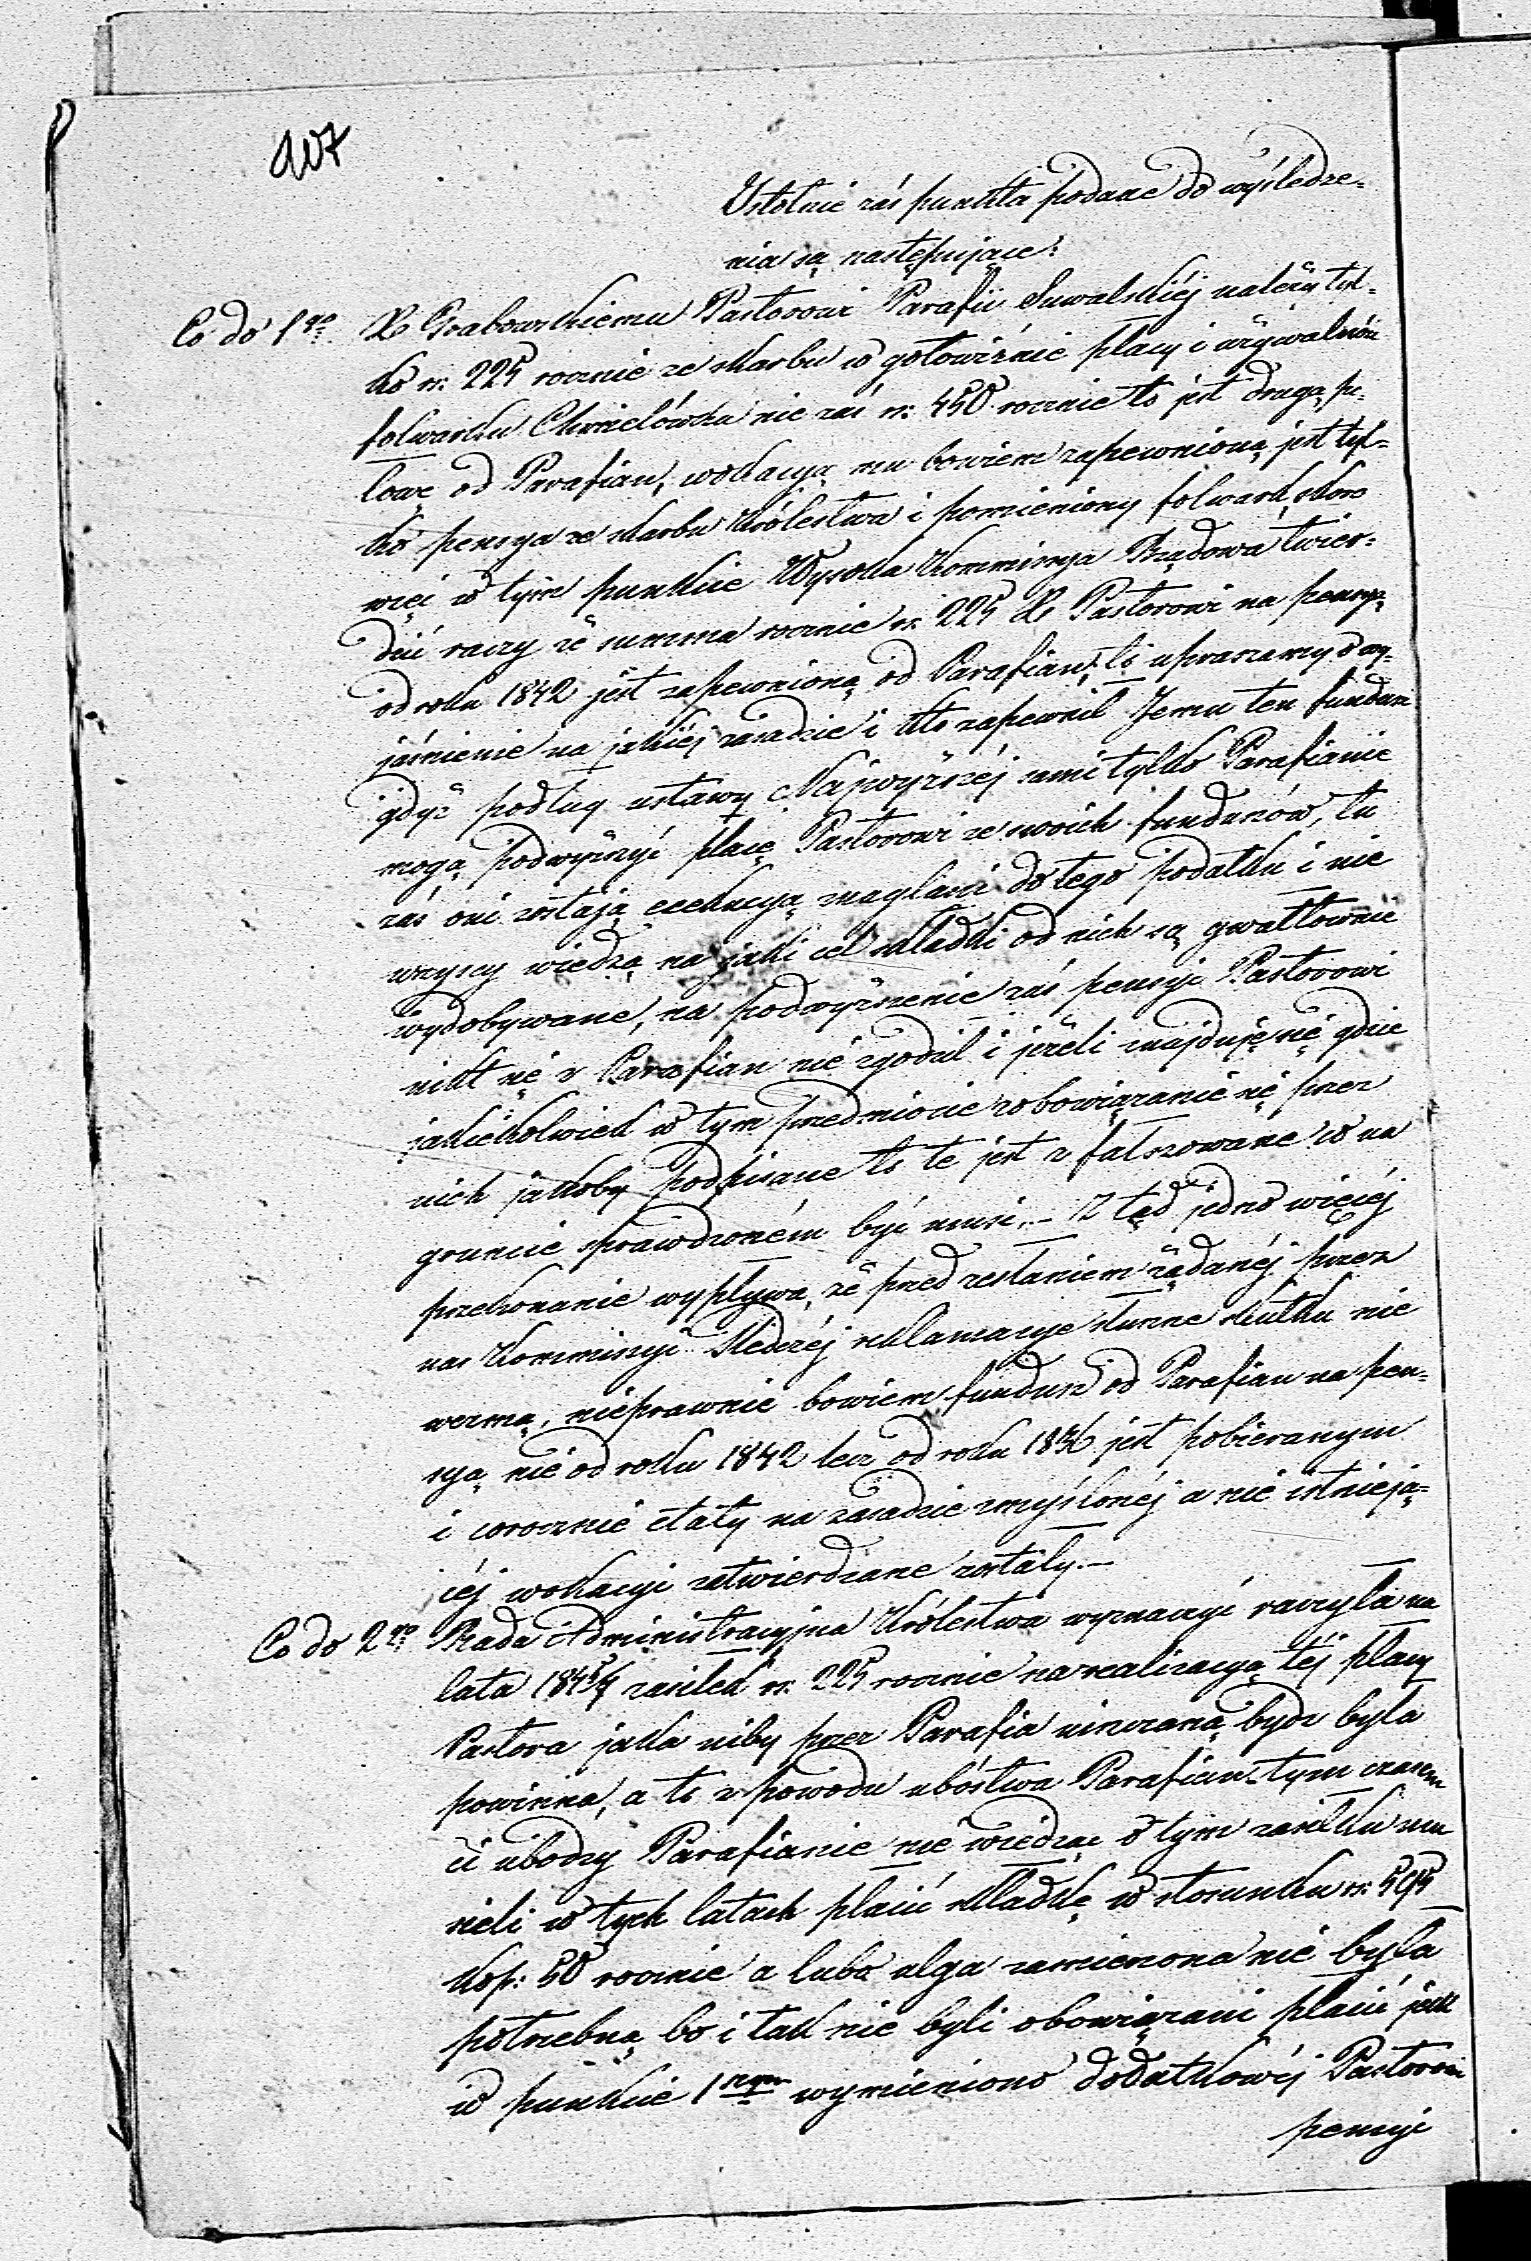 207
Istotnie zaś punkta podane do wyśledze-
nia są następujące:
Co do 1go X. Grabowskiemu Pastorowi Parafii Suwalskiéj należy tyl-
ko rs. 225 rocznie ze skarbu w gotowiznie płacy i używalność
folwarku Chmielówka nie zaś rs. 450 rocznie to jest drugą po-
łowę od Parafian, wokacyą mu bowiem zapewnioną jest tyl-
ko pensya ze skarbu Królestwa i pomieniony folwark, skoro
więc w tym punkcie Wysoka Kommissya Rządowa twier-
dzić raczy że summa rocznie rs. 225 X. Pastorowi na pensyą
od roku 1842 jest zapewnioną od Parafian, to upraszamy o wy-
jaśnienie na jakiéj zasadzie i kto zapewnił Jemu ten fundusz
gdyż podług ustawy Najwyższéj sami tylko Parafianie
mogą podwyższyć płacę Pastorowi ze swoich funduszów, tu
zaś oni zostają exekucyą znagleni do tego podatku i nie
wszyscy wiedzą na jaki cel składki od nich są gwałtownie
wydobywane, na podwyższenie zaś pensyi Pastorowi
nikt się z Parafian nie zgodził i jeżeli znajduje się gdzie
jakiekolwiek w tym przedmiocie zobowiązanie się przez
nich jakoby podpisane to te jest z fałszowane co na
gruncie sprawdzoném być musi.– Z tąd jedno więcéj
przekonanie wypływa, że przed zesłaniem żądanéj przez
nas Kommissyi Śledczéj reklamacye słuszne skutku nie
wezmą, nieprawnie bowiem fundusz od Parafian na pen-
syą nie od roku 1842 lecz od roku 1836 jest pobieranym
i corocznie etaty na zasadzie zmyślonéj a nie istnieją-
céj wokacyi zatwierdzane zostały.–
Co do 2go Rada Administracyjna Królestwa wyznaczyć raczyła na
lata zasiłek rs. 225 rocznie na realizacyą téj płacy
Pastora jaka niby przez Parafia uiszczaną bydź była
powinna, a to z powodu ubóstwa Parafian – tym czasem
ci ubodzy Parafianie nie wiedząc o tym zasiłku mu
sieli w tych latach płacić składkę w stosunku rs. 595
kop: 50 rocznie a lubo ulga zamierzona nie była
potrzebną bo i tak nie byli obowiązani płacić jak
w punkcie 1szym wymieniono dodatkowéj Pastorowi
pensyi